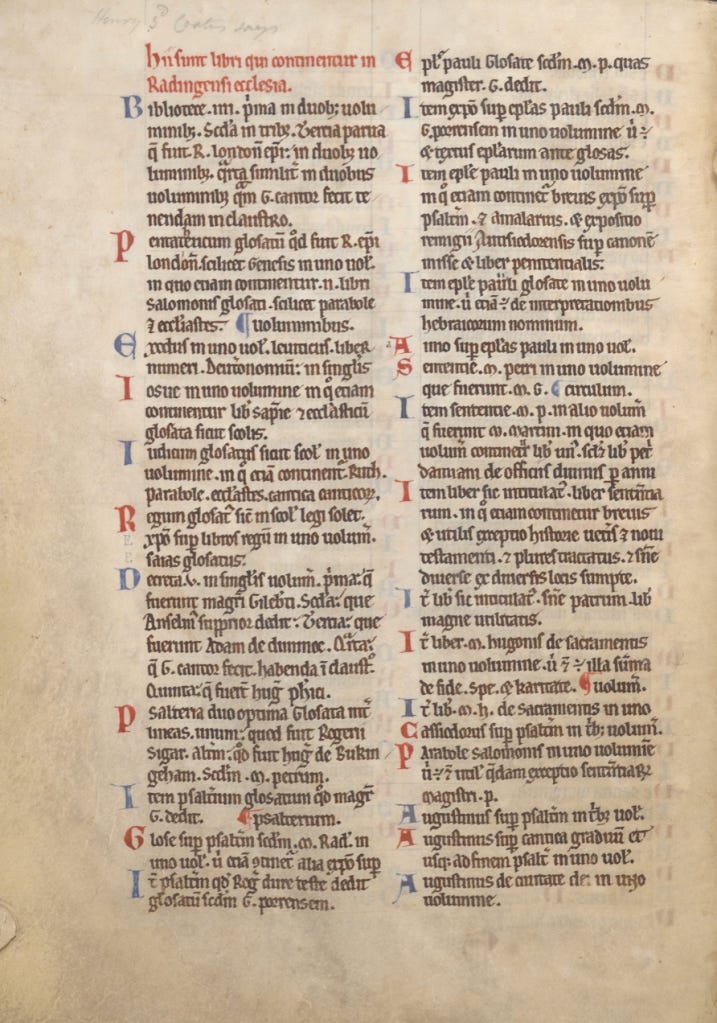 Hii sunt libri qui continentur in
Radingensi ecclesia.
Bibliotece .iiii. p̄ma in duobꝫ uolu
minibꝫ. Sc̄da in tribꝫ. Tertia parua
q̄ fuit .R. londoñ ep̄i: in duobꝫ uo
luminibꝫ. q̄rta similit̄ in duobus
uoluminibꝫ q̄m G. cantor fecit te
nendam in claustro.
Pentateucum glosatū qd̄ fuit R. ep̄i
londoñ. scilicet Genesis in uno uol̄.
in quo etiam continentur .ii. libri
salomonis glosati. scilicet parabole
⁊ ecc̄lastes. ¶ uoluminibus.
Exodus in uno uol̄. leuiticus. liber
numeri. Deutronomiū: in singlis
Iosue in uno uolumine in q̊ etiam
continentur lib̄ sapīe ⁊ ecclasticū
glosata sicut scolis.
Iudicum glosatus sicut scol̄ in uno
uolumine. in q̊ etiā continent̄. Ruth.
parabole. eccl̄astes. cantica canticoꝝ.
Regum glosat̄ sic̄ in scol̄ legi solet.
Expō sup̄ libros regū in uno uolum̄.
saias glosatus:
Decreta .v. in singlis uolum̄. p̄ma: q̄
fuerunt magr̄i Gileb̄ti. Sc̄da: que
Anselm̄ supprior dedit. Tertia: que
fuerunt Adam de dummoc. Q̊rta:
q̄ G. cantor fecit. habenda ī claust̊.
Quinta: q̄ fuer̄t huḡ phici.
Psalteria duo optima Glosata int̄
lineas. unum: quod fuit Rogeri
Sigar. alt̄m: qd̄ fuit huḡ de Bukin
geham. Sc̄dm .M. petrum.
Item psalterium glosatum qd̄ magr̄
G. dedit. ¶ psalterium.
Glose sup̄ psalt̄m sc̄dm .M. Rad̄. in
uno uol̄. ū etiā ꝯtinet̄ alia exp̄o sup̄
It̄ psalt̄m qd̄ Roḡ dure teste dedit
glosatū sc̄dm G. porrensem.
Epl̄e pauli Glosate sc̄dm .M. p. quas
magister .G. dedit.
Item exp̄o sup̄ epl̄as pauli sc̄dm .M.
G. porrensem in uno uolumine ū ÷
& textus epl̄arum ante glosas.
Item epl̄e pauli in uno uolumine
in q̊ etiam continet̄ breuis exp̄o sup̄
psalt̄m. ⁊ amalarius. & expositio
remigii Autisiodorensis sup̄ canonē
misse & liber penitentialis:
Item epl̄e pauli glosate in uno uolu
mine. ū etiā ÷ de interpretationibus
hebraicorum nominum.
Aimo sup̄ epl̄as pauli in uno uol̄.
Sententie .M. petri in uno uolumine
que fuerunt .M. G. ¶ circulum.
Item sententie .M. p. in alio uolum̄
q̄ fuerunt .M. martini. in quo etiam
uolum̄ continet̄ lib̄ un̄. sc̄dꝫ lib̄ pet̄
damiani de officiis diuinis p̄ anni
Item liber sic intitulat̄. liber sentētia
rum. in q̊ etiam continetur breuis
& utilis exceptio historie uet̄is & noui
testamenti. ⁊ plures tractatus. ⁊ sn̄e
diuerse ex diuersis locis sumpte.
It̄ lib̄ sic intitulat̄. sn̄e patrum. lib̄
magne utilitatis.
It̄ liber .M. hugonis de sacramentis
in uno uolumine. ū ⁊̄ ÷ illa sūma
de fide. spe. & karitate. ¶ uolum̄.
It̄ lib̄. M. h. de sacramentis in uno
Cassiodorus sup̄ psalt̄m in tb̄ꝫ uolum̄.
Parabole salomonis in uno uolumīe
ū ÷ ⁊̄ util̄ q̄dam exceptio sentētiaꝝ
magistri .p.
Augustinus sup̄ psalt̄m in tb̄ꝫ uol̄.
Augustinus sup̄ cantica graduū et
usq; ad finem psalt̄ in uno uol̄.
Augustinus de ciuitate dei in uno
uolumine.